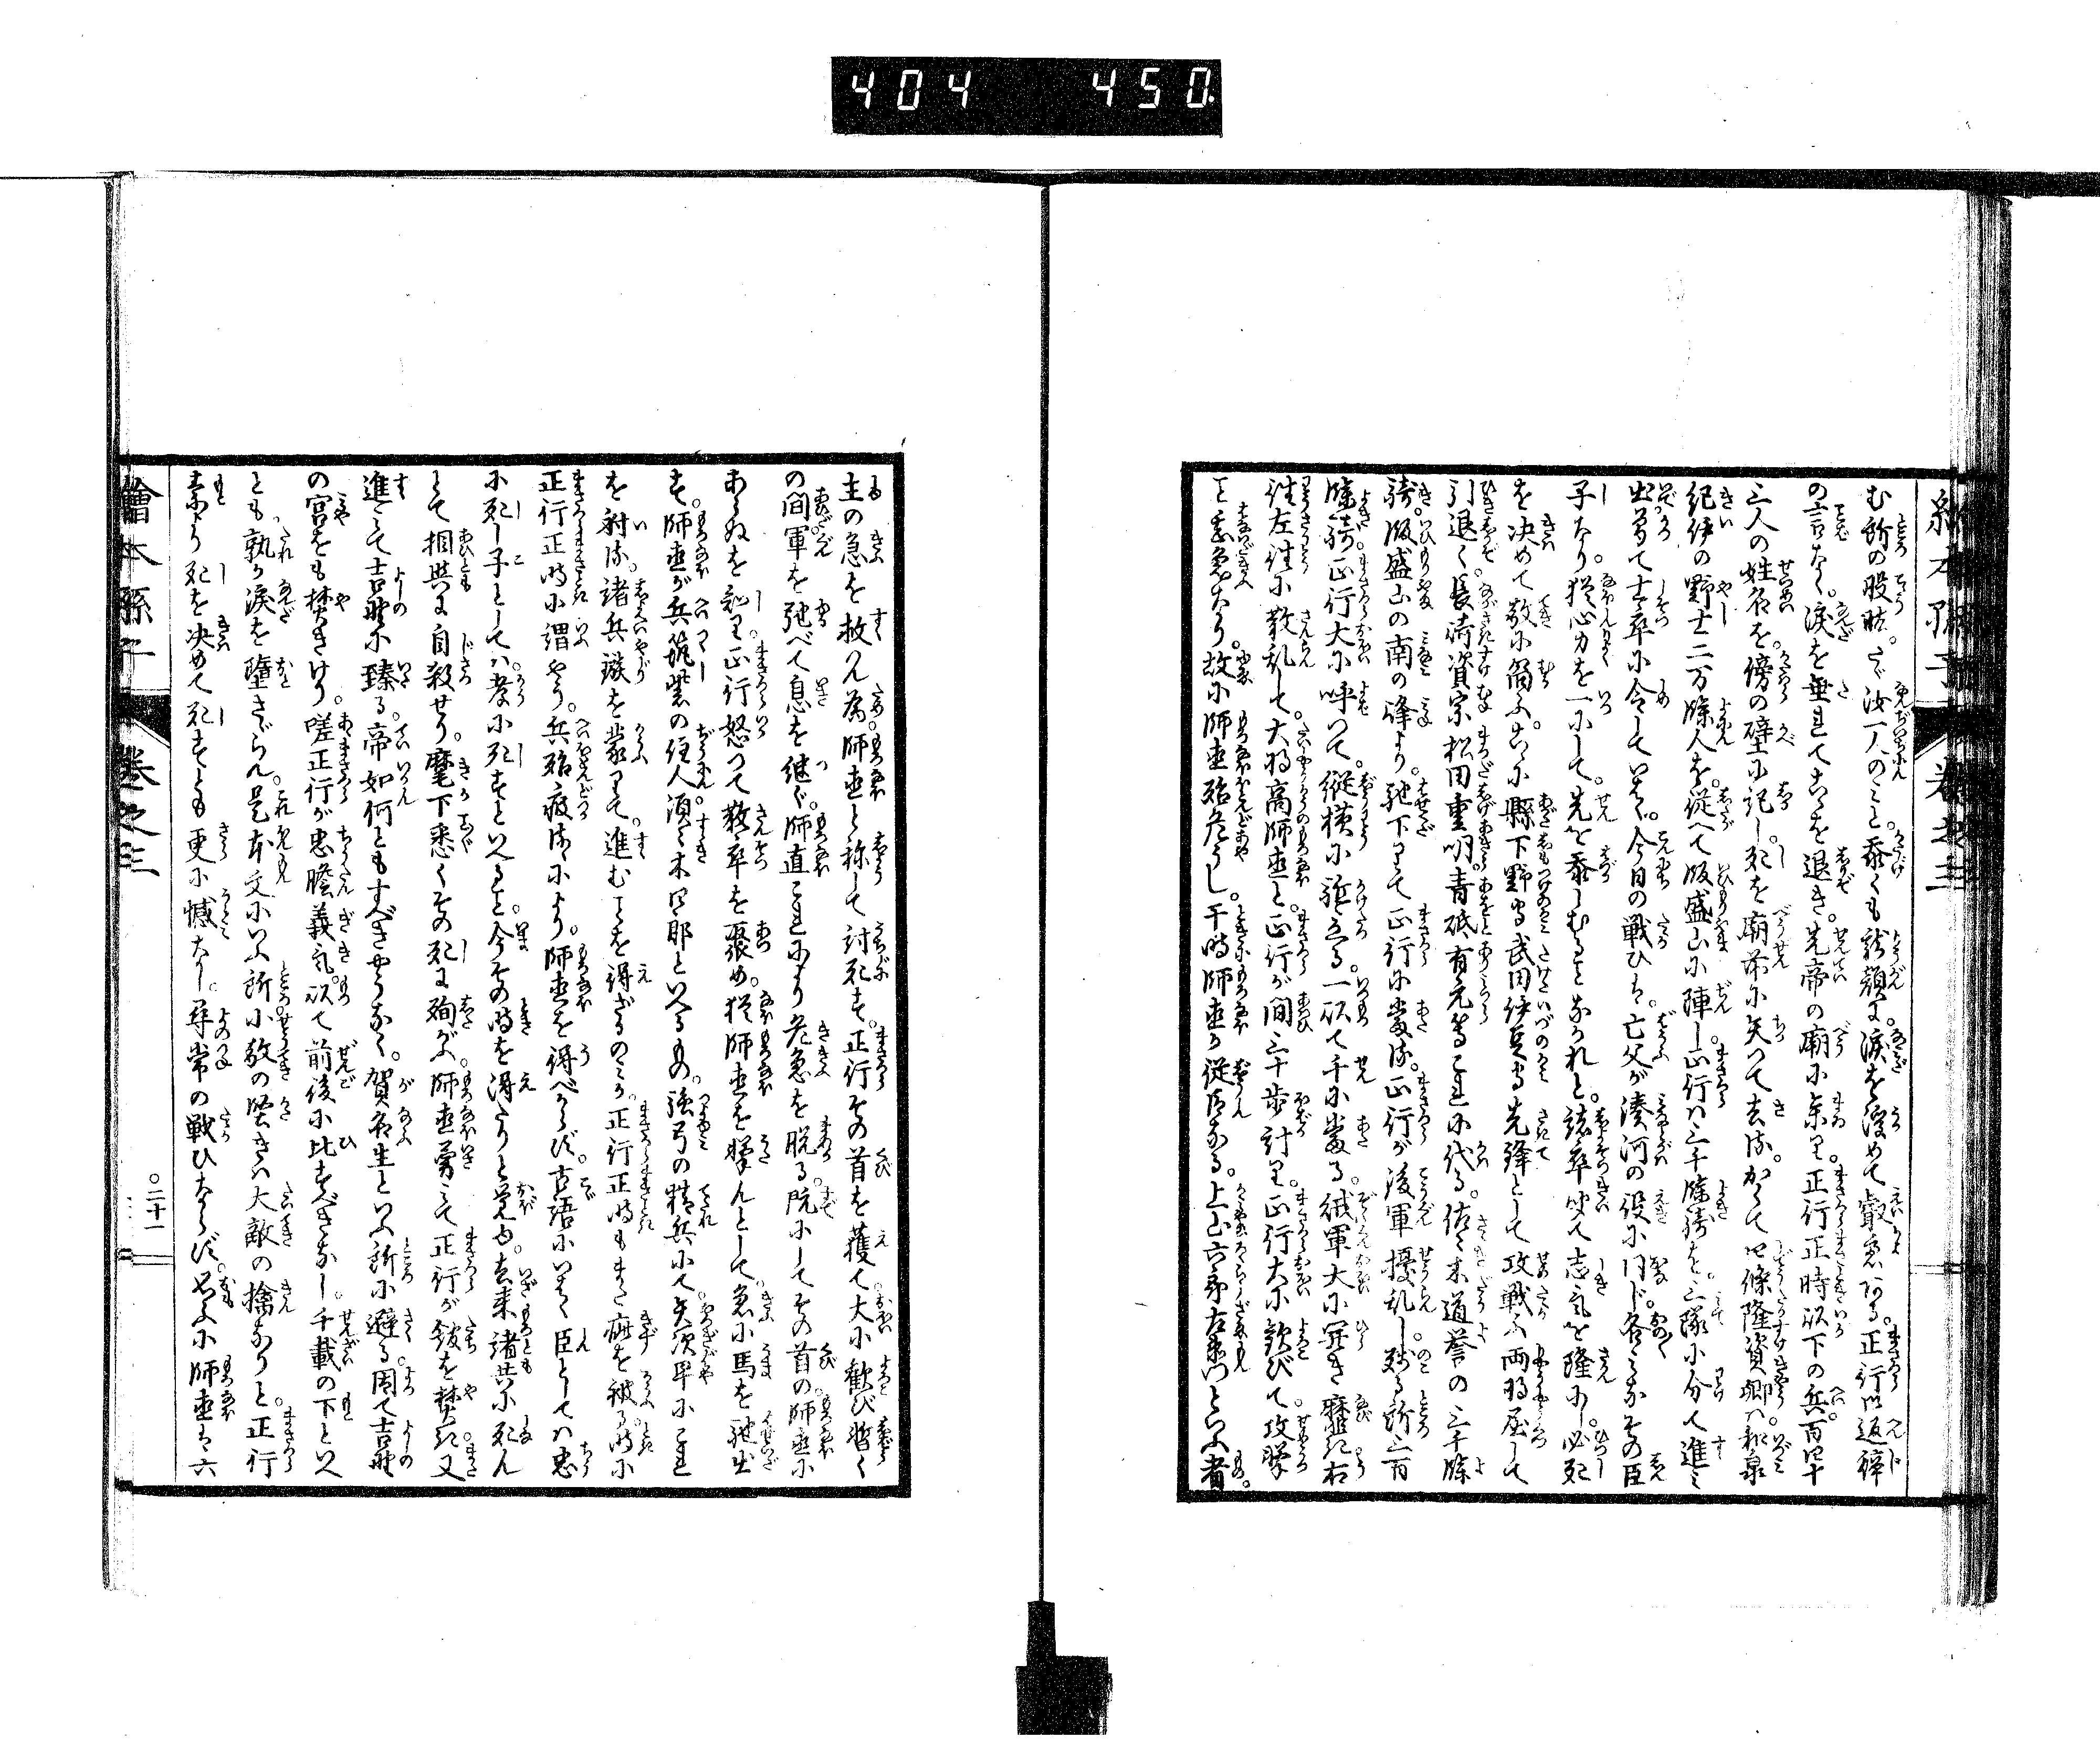 404 450
む所の股肱。たゞ汝一人のこと。忝くも龍顔に。涙を浮めて叡慮ある。正行以返辞
の言なく。涙を垂れてこゝを退き。先帝の廟に參り。正行正時以下の兵。百四十
三人の姓名を。傍の壁に記し。死を廟前に矢つて去ぬ。かくて四條隆資卿ハ和泉
紀伊の野士二万餘人を。従へて飯盛山に陣し。正行ハ三千餘騎を。三隊に分て進み
出。曽て士卒に令していはく。今日の戦ひは。亡父が湊河の役に同じ。各みなその臣
子たり。猶心力を一にして。先を忝しむることなかれと。諸卒听て志気を隆にし。必死
を決めて敵に向ふ。こゝに縣下野守武田伊豆守先鋒として攻戦ふ。両将屈して
引退く。長崎資宗松田重明。青砥有元等これに代る。佐々木道誉の三千餘
騎。飯盛山の南の峰より。馳下りて正行に當る。正行が後軍擾乱し。残る所三百
餘騎。正行大に呼つて。縦横に馳立る。一以て千に當る。賊軍大に開き靡き右
往左往に散乱して。大将高師直と。正行が間三十歩計り。正行大に歓びて。攻撃
こと甚急なり。故に師直殆危うし。于時師直が従兵なる。上山六郎左衛門といふ者。
主の急を救ん為。師直と称して討死す。正行その首を獲て。大に歓び暫く
の間軍を弛べて息を継ぐ。師直これにより危急を脱る。既にしてその首の。師直に
あらぬを知り。正行怒つて散卒を聚め。猶師直を撃んとして。急に馬を馳出
す。師直が兵筑紫の住人。須々木四郎といへるもの。強弓の精兵にて。矢次早にこれ
を射ぬ。諸兵鏃を蒙りて。進むことを得ざるのミか。正行正時もまた疵を被る。時に
正行正時に謂やう。兵殆疲ぬるにより。師直を得べからず。古語にいはく臣としてハ忠
に死し子としてハ。孝に死すといへること。今その時を得たりと覚ゆ。去来諸共に死ん
とて相共に自殺せり。麾下悉くその死に殉がふ。師直勇ミて正行が館を焚た又
進ミて吉野に臻る。帝如何ともすべきやうなく。賀名生といふ所に避る。因て吉野
の宮をも焚きけり。嗟正行が忠膽義気。以て前後に比すべきなし。千載の下といへ
とも孰か涙を墮さゞらん。是本文にいふ所。小敵の堅きハ大敵の擒なりと。正行
素より死を决めて死すとも更に憾なし。尋常の戦ひならず。思ふに師直は六
繪本孫子 巻之三 ○二十一